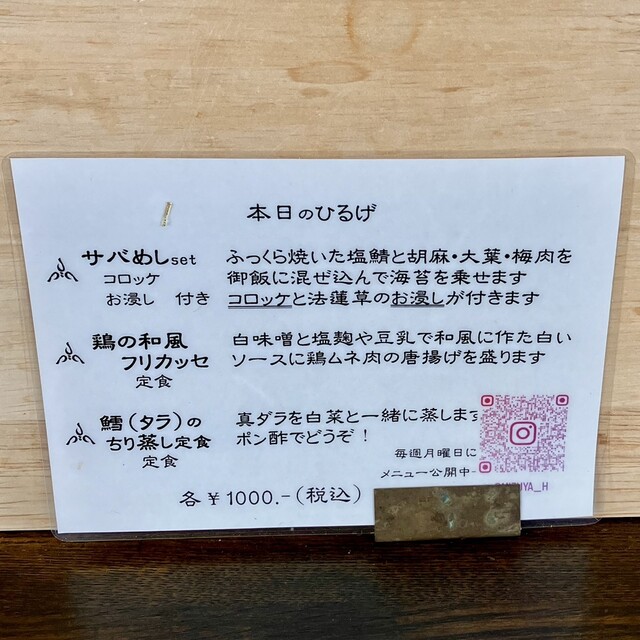 本日のひるげ
サバめしset
コロッケ
お浸し 付き
ふっくら焼いた塩鯖と胡麻・大葉・梅肉を
御飯に混ぜ込んで海苔を乗せます
コロッケと法蓮草のお浸しが付きます
鶏の和風
フリカッセ
定食
白味噌と塩麹や豆乳で和風に作た白い
ソースに鶏ムネ肉の唐揚げを盛ります
鱈(タラ)の
ちり蒸し定食
定食
真ダラを白菜と一緒に蒸します
ポン酢でどうぞ!
毎週月曜日に
メニュー公開中
各¥1000.-(税込)